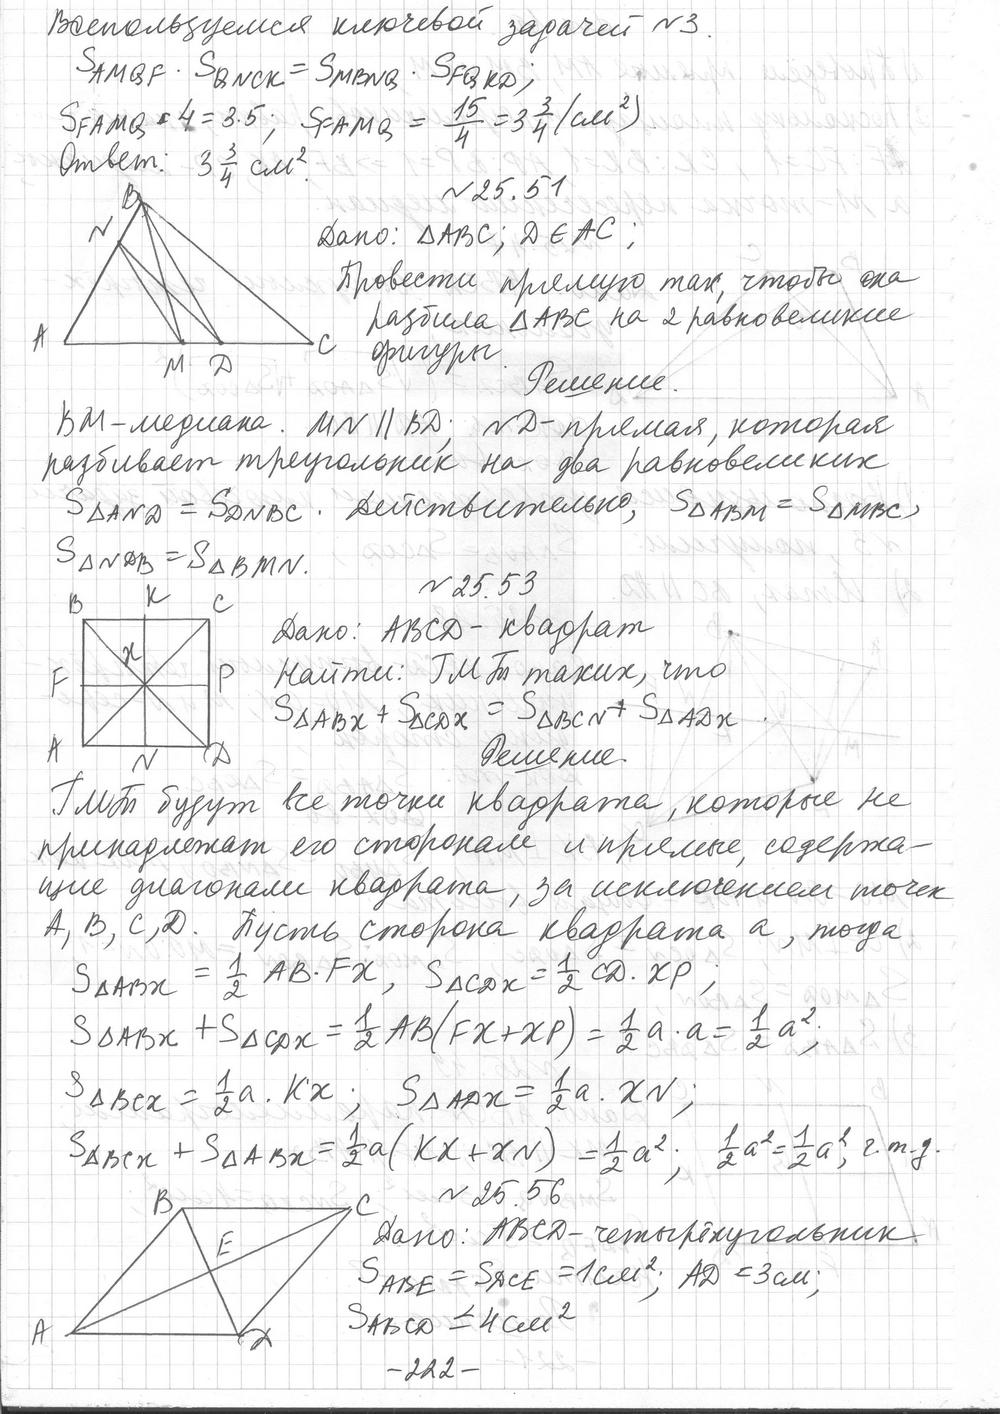 Воспользуемся ключевой задачей №3.
S_AMQF · S_QNCK = S_MBNQ · S_FQKD;
S_FAMQ · 4 = 3·5; S_FAMQ = 15/4 = 3 3/4 (см²)
Ответ: 3 3/4 см².
№25.51
B
N
A
M
D
C
Дано: △ABC; D∈AC;
Провести прямую так, чтобы она
разбила △ABC на 2 равновеликие
фигуры.
Решение.
BM – медиана. MN || BD; ND – прямая, которая
разбивает треугольник на два равновеликих
S△AND = S_DNBC. Действительно, S△ABM = S△MBC,
S△NDB = S△BMN.
№25.53
B K C
x
F P
A N D
Дано: ABCD – квадрат
Найти: ГМТ таких, что
S△ABX + S△CDX = S△BCN + S△ADX.
Решение.
ГМТ будут все точки квадрата, которые не
принадлежат его сторонам и прямые, содержа-
щие диагонали квадрата, за исключением точек
A, B, C, D. Пусть сторона квадрата a, тогда
S△ABX = 1/2 AB·FX, S△CDX = 1/2 CD·XP;
S△ABX + S△CDX = 1/2 AB(FX+XP) = 1/2 a·a = 1/2 a²;
S△BCX = 1/2 a·KX; S△ADX = 1/2 a·XN;
S△BCX + S△ABX = 1/2 a(KX+XN) = 1/2 a²; 1/2 a² = 1/2 a², ч.т.д.
№25.56
B C
E
A D
Дано: ABCD – четырёхугольник
S_ABE = S_DCE = 1 см²; AD = 3 см;
S_ABCD ≤ 4 см²
-222-